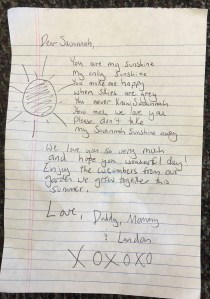 Dear Savannah,
You are my sunshine
My only sunshine
You make me happy
when skies are grey
You never know Savannah
how much we love you
Please don't take
my Savannah sunshine away
We love you so very much
and hope you wonderful day!
Enjoy the cucumbers from our
garden we grow together this
summer.
Love, Daddy, Mommy
& London
XOXOXO